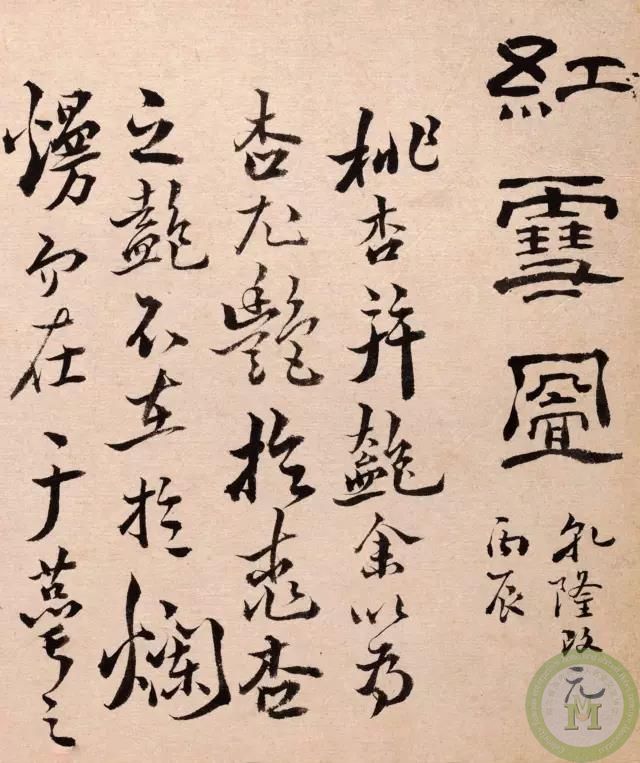 紅雪圖
乾隆改
丙辰
桃杏并艷余以為
杏尤艷於桃杏
之艷不在於爛
熳而在于蕚之
元
M